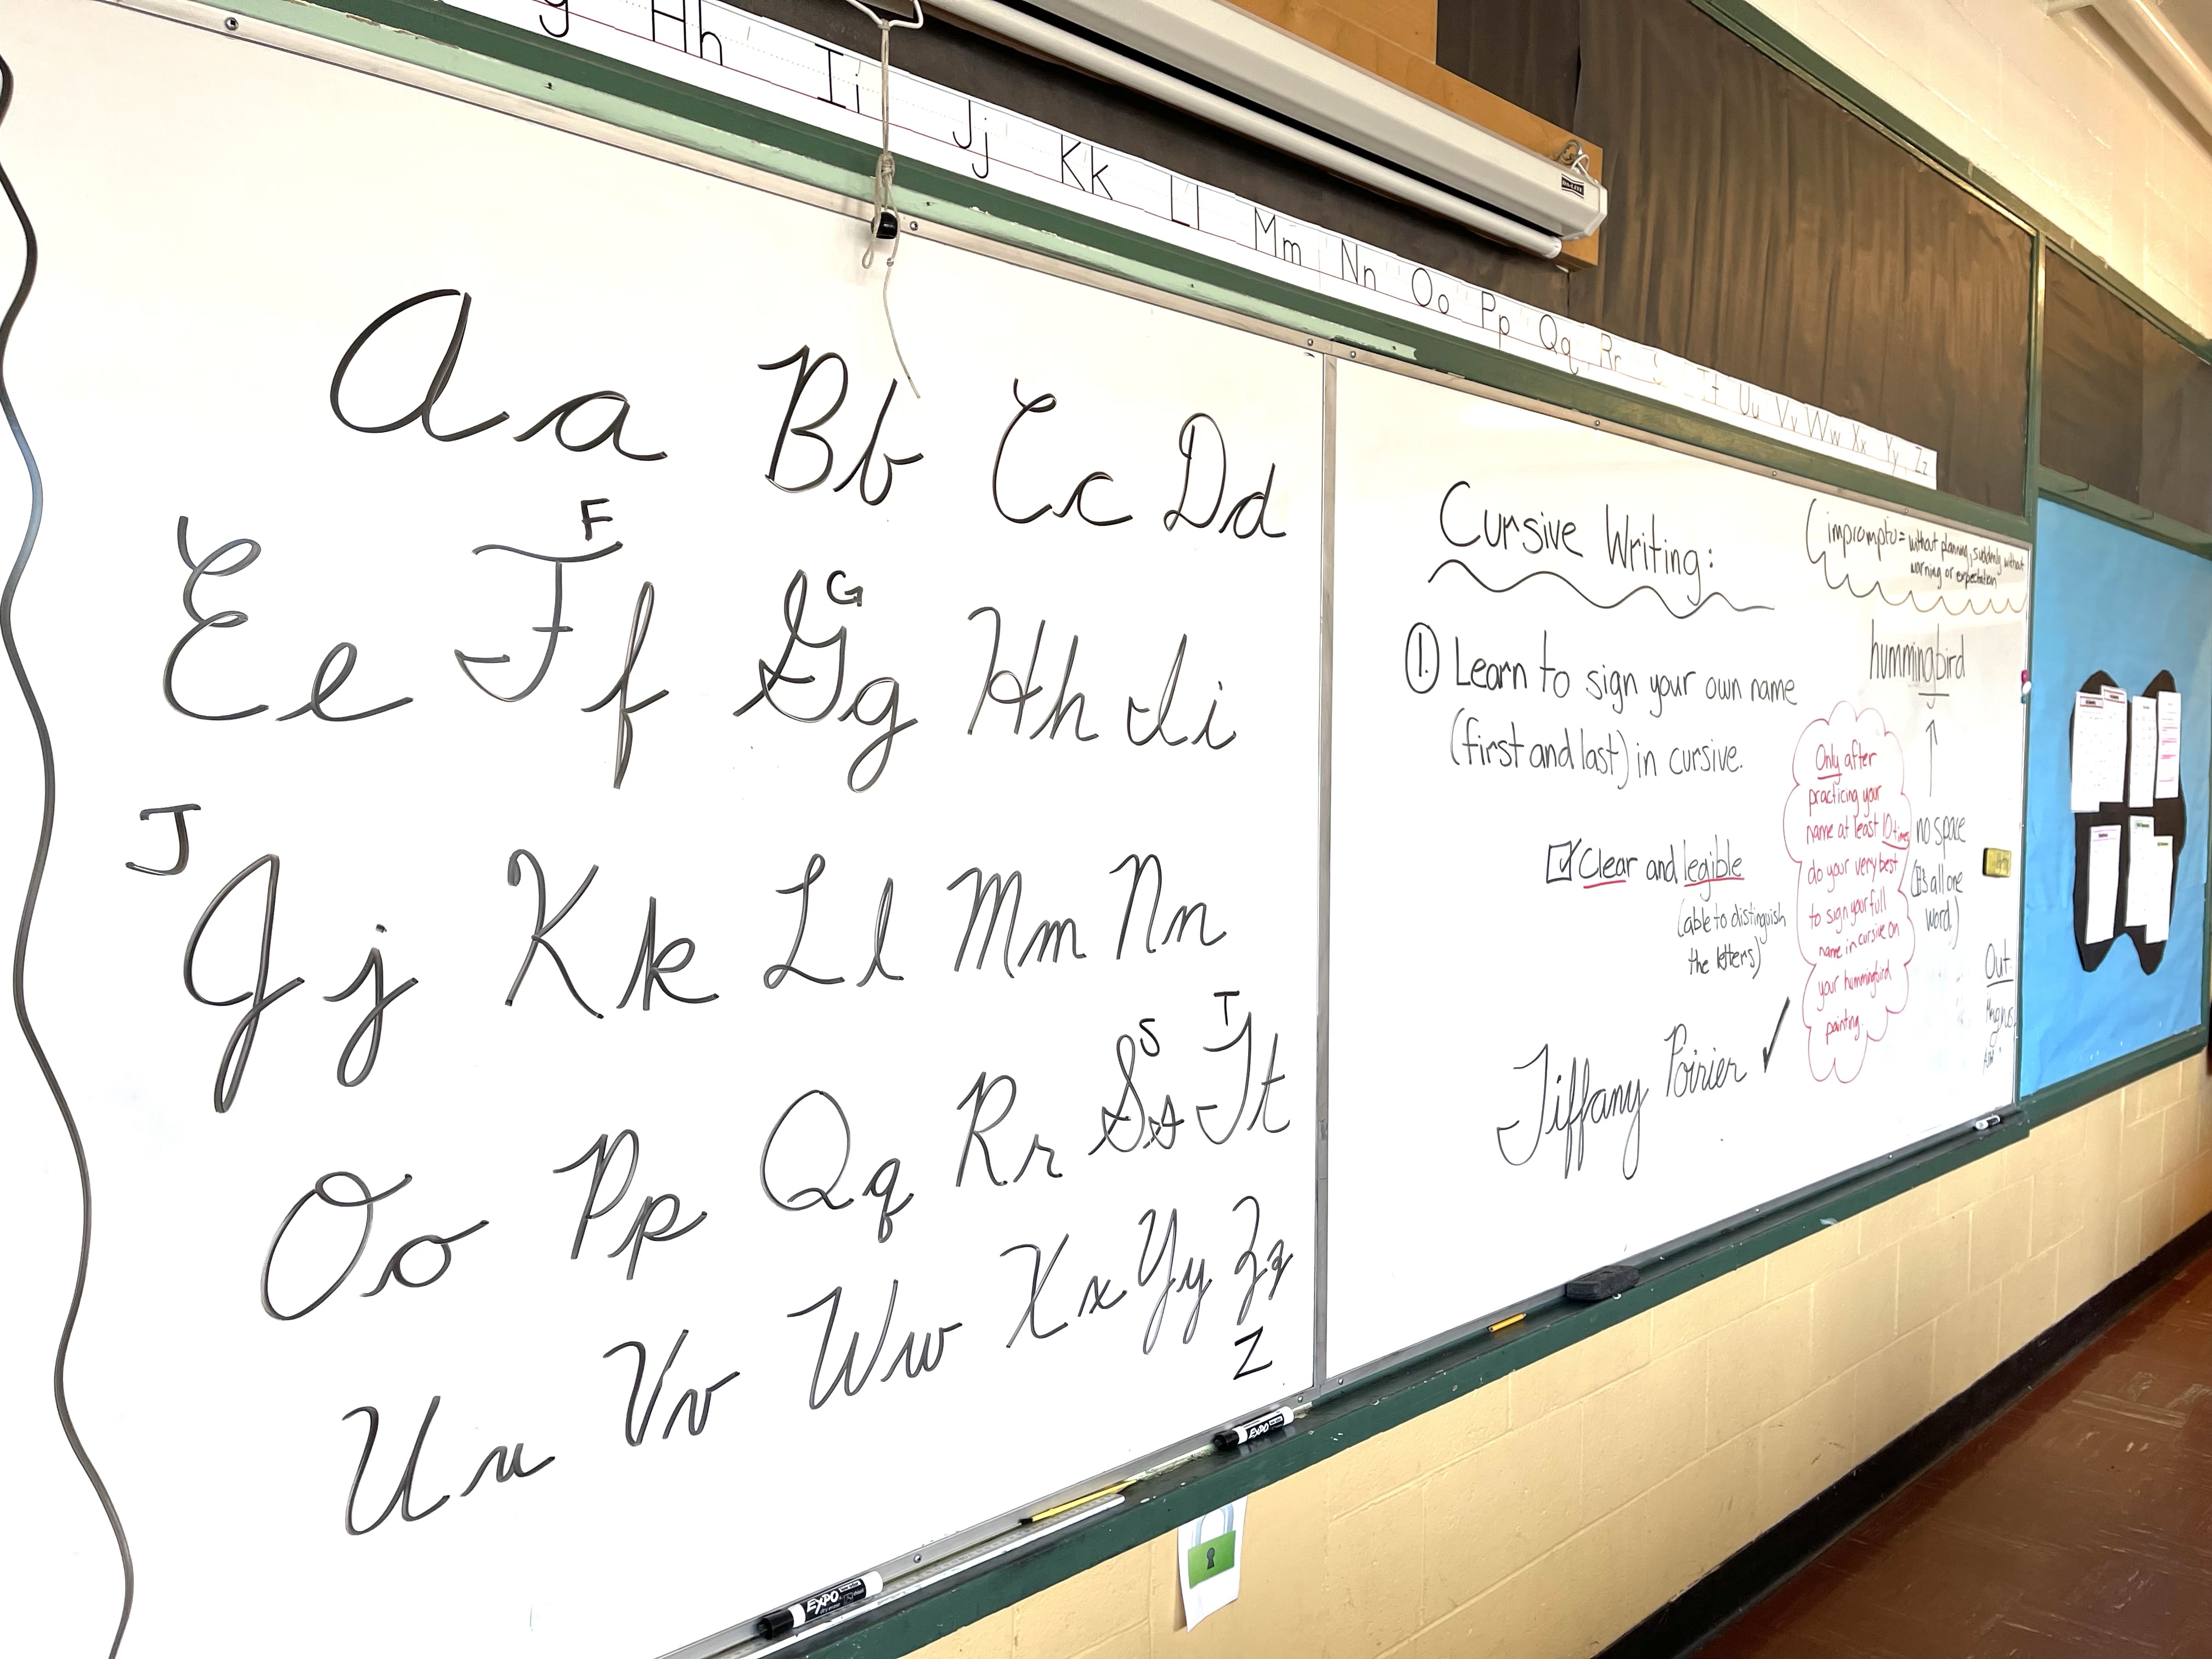 g Hh Ii Jj Kk Ll Mm Nn Oo Pp Qq Rr S Tt Uu Vv Ww Xx Yy Zz
Aa Bb Cc Dd
F
G
Ee Ff Gg Hh Ii
J
Jj Kk Ll Mm Nn
S T
Oo Pp Qq Rr Ss Tt
Uu Vv Ww Xx Yy Zz
Z
EXPO
EXPO
Cursive Writing:
1. Learn to sign your own name
(first and last) in cursive.
Clear and legible
(able to distinguish
the letters)
Tiffany Poirier ✓
impromptu = without planning, suddenly without
warning or expectation
hummingbird
↑
no space
(It's all one
word.)
Only after
practicing your
name at least 10 times
do your very best
to sign your full
name in cursive on
your hummingbird
painting.
Out
Magnus